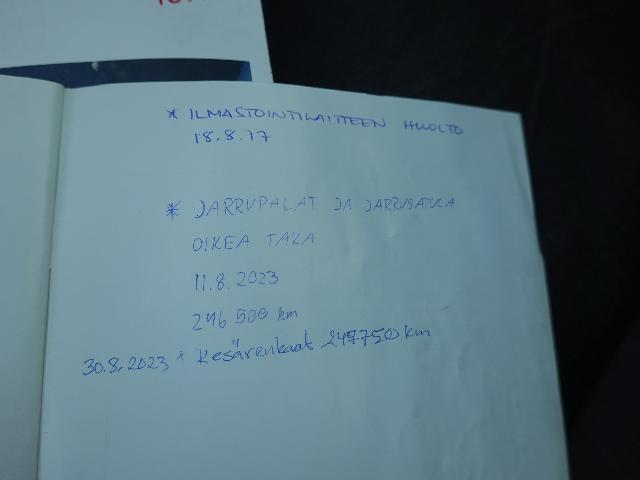 * ILMASTOINTILAITTEEN HUOLTO
18.8.17
* JARRUPALAT JA JARRUSATULA
OIKEA TAKA
11.8.2023
246 500 km
30.8.2023 * Kesärenkaat 247750 km